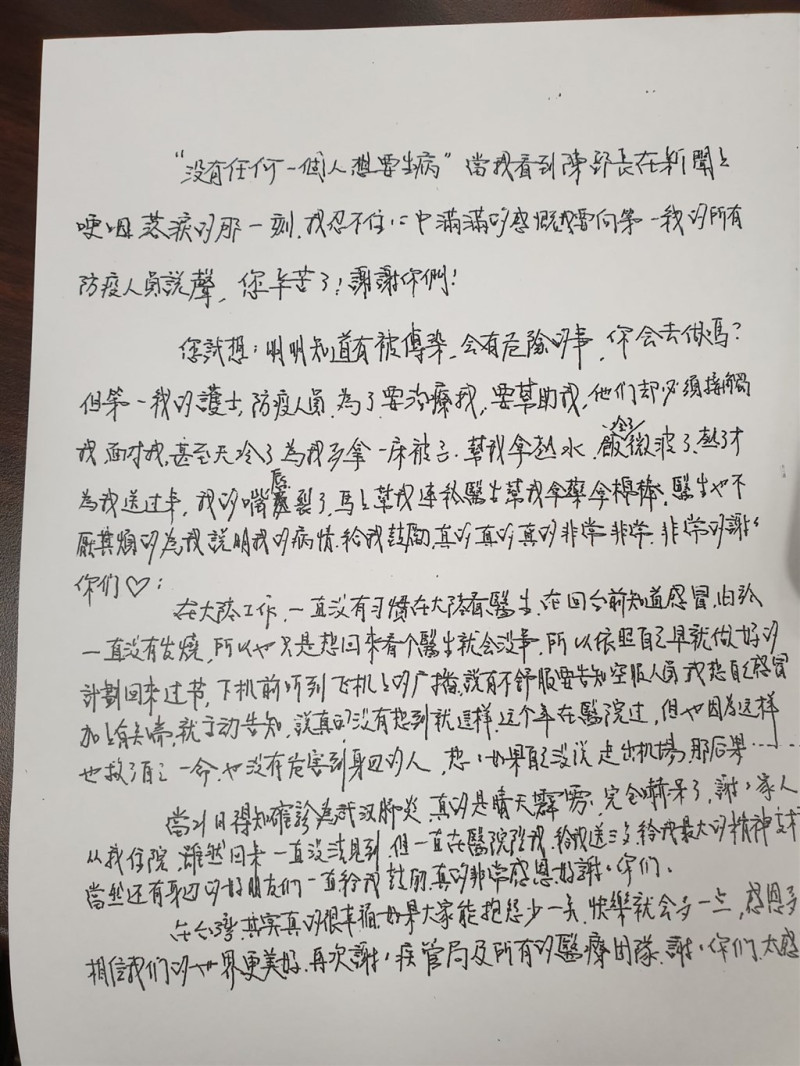 “没有任何一個人想要生病”當我看到陳部長在新聞上
哽咽落淚的那一刻,我忍不住心中滿滿的感慨我要向第一線的所有
防疫人員說聲,您辛苦了!謝謝你們!
您試想:明明知道有被傳染,会有危險的事,你会去做嗎?
但第一線的護士,防疫人員,為了要治療我,要幫助我,他们却必須接觸
我,面对我,甚至天冷了為我多拿一床被子.幫我拿熱水.飯冷了微波了,熱了才
為我送过来,我的嘴唇裂了,馬上幫我連絡醫生幫我拿藥拿棉棒,醫生也不
厭其煩的為我說明我的病情.給我鼓励,真的真的真的非常非常.非常的謝謝
你们♡:
在大陸工作,一直没有习慣在大陸看醫生,在回台前知道感冒,由於
一直没有发燒,所以也只是想回來看个醫生就会没事,所以依照自己早就做好的
計劃回來过节,下机前听到飞机上的广播,說有不舒服要告知空服人員我想自己感冒
加上有头痛,就主动告知,說真的没有想到就這样,这个年在醫院过,但也因為这样
也救了自己一命.也没有危害到身边的人,想想如果自己没說走出机場,那后果……
當21日得知確診為武汉肺炎,真的是晴天霹靂,完全嚇呆了,謝謝家人
从我住院,雖然回來一直没法見到,但一直在醫院陪我,給我送,給我最大的精神支
當然还有身边的好朋友们一直給我鼓励,真的非常感恩.好謝謝你们.
在台灣,其实真的很幸福.如果大家能抱怨少一点,快樂就会多一点,感恩多
相信我们的世界更美好.再次謝謝疾管局及所有的醫療团隊.謝謝你们.太感